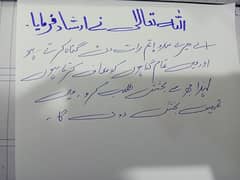 اللہ تعالیٰ نے ارشاد فرمایا۔
اے میرے بندو! تم رات دن گناہ کرتے ہو
اور میں تمام گناہوں کو معاف کرتا ہوں
لہذا مجھ سے بخشش طلب کرو۔ میں
تمہیں بخش دوں گا۔